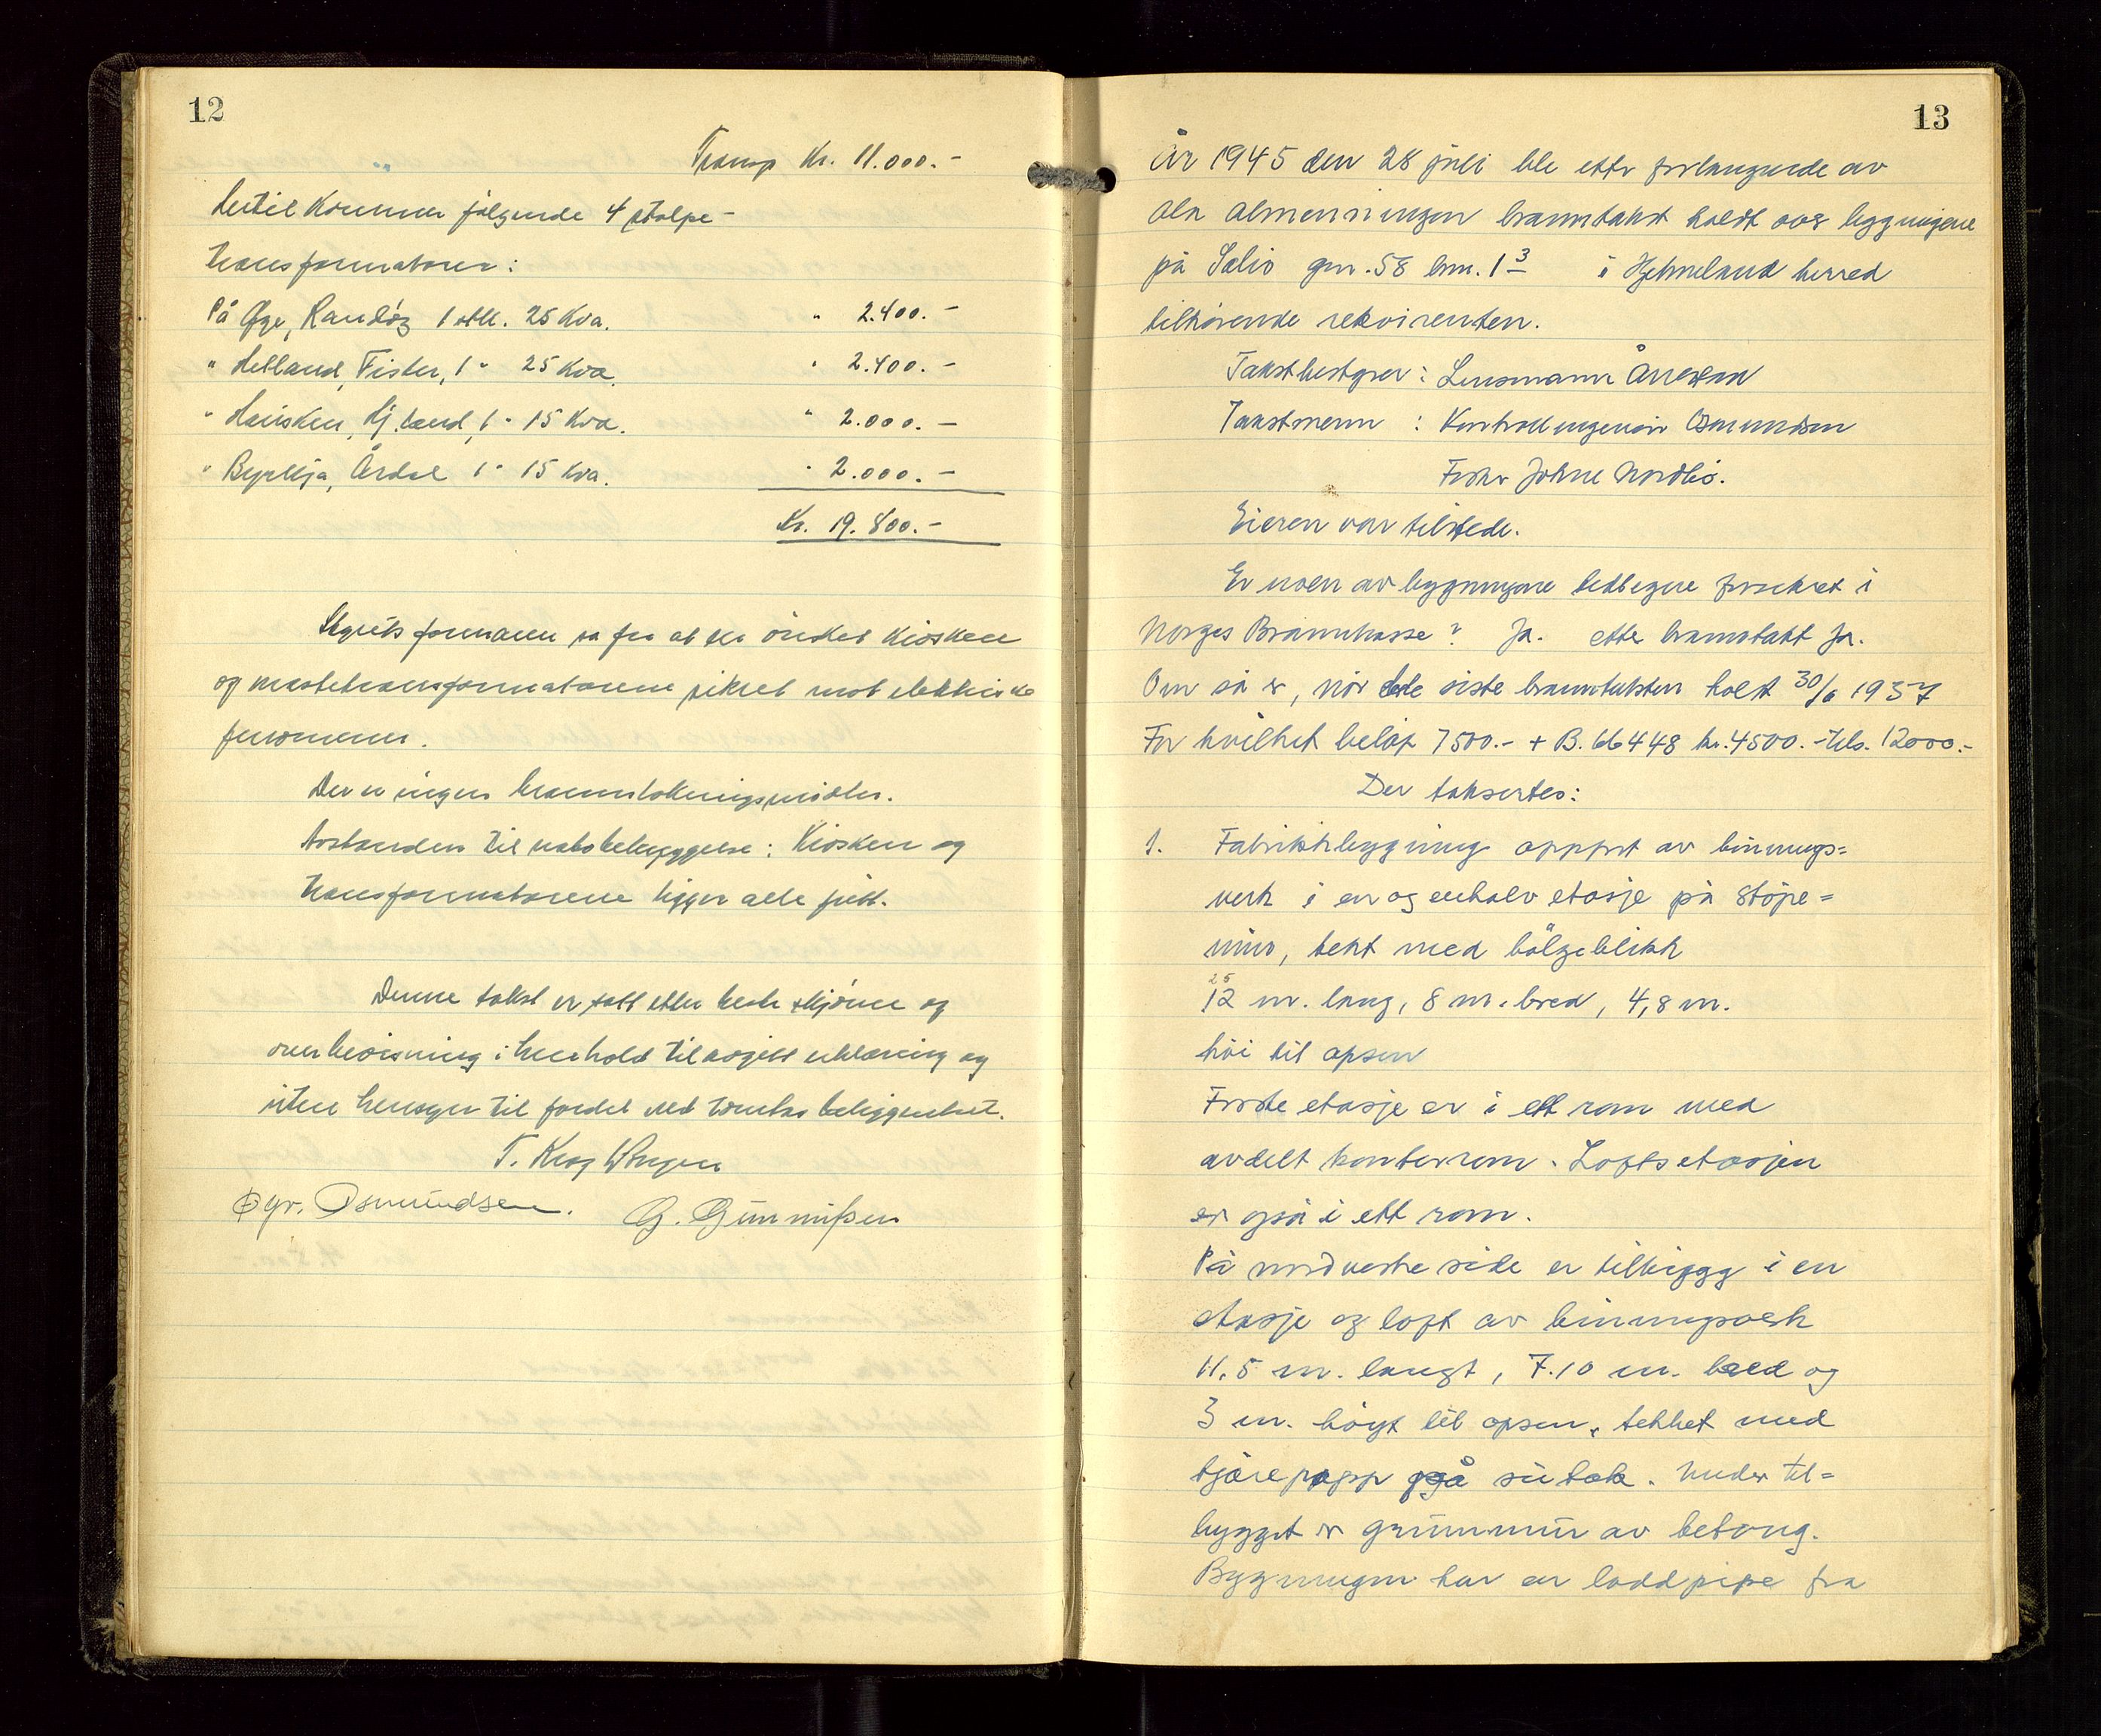 12
Transp Kr. 11.000.-
Hertil kommer følgende 4 stolpe-
transformatorer:
På Øge, Randøy 1 stk. 25 Kva. " 2.400.-
" Helland, Fister, 1 " 25 Kva. " 2.400.-
" Hausken, Hj.land, 1 " 15 Kva. " 2.000.-
" Byrkja, Årdal 1 " 15 Kva. " 2.000.-
Kr. 19.800.-
formann sa fra at der ønskes kiosken
og mastetransformatorene sikret mot elektriske
fenomener.
Der er ingen brannslokningsmidler.
Avstanden til nabobebyggelse: Kiosken og
transformatorene ligger alle fritt.
Denne takst er satt etter beste skjønn og
overbevisning i henhold til avgitt erklæring og
uten hensyn til fordel ved tomtens beliggenhet.
T. Krag
Osmundsen. G. Gunnufsen
13
År 1945 den 28 juli ble etter forlangende av
almenningen branntakst holdt over bygningene
på gnr. 58 bnr. 1 3 i Hjelmeland herred
tilhørende rekvirenten.
Takstbestyrer: Lensmann
Takstmenn : Kontrollingeniør Osmundsen
Johne Nordbø.
Eieren var tilstede.
Er noen av bygningene tidligere forsikret i
Norges Brannkasse? Ja. etter branntakst Ja.
Om så er, når ble siste branntaksten holdt 30/6 1937
For hvilket beløp 7500.- + B. 66448 kr. 4500.- Tils. 12000.-
Der takseertes:
1. Fabrikkbygning oppført av binnings=
verk i en og enhalv etasje på støpe=
mur, tekt med bølgeblikk
25
12 m. lang, 8 m. bred, 4,8 m.
høi til opsen
Første etasje er i ett rom med
avdelt kontorrom. Loftsetasjen
er også i ett rom.
På nordvestre side er tilbygg i en
etasje og loft av binningsverk
11,5 m. langt, 7.10 m. bred og
3 m. høgt til opsen, tekket med
tjærepapp på sutak. Under til=
bygget er grunnmur av betong.
Bygningen har en loddpipe fra